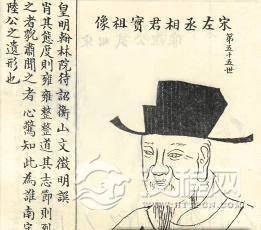 宋左丞相君實祖像
第五十五世
皇明翰林院待詔衡山文徵明譔
肖其態度則雍雍整整道其志節則烈
之者觀肅聞之者心驚知此為誰南宋
陸公之遺形也